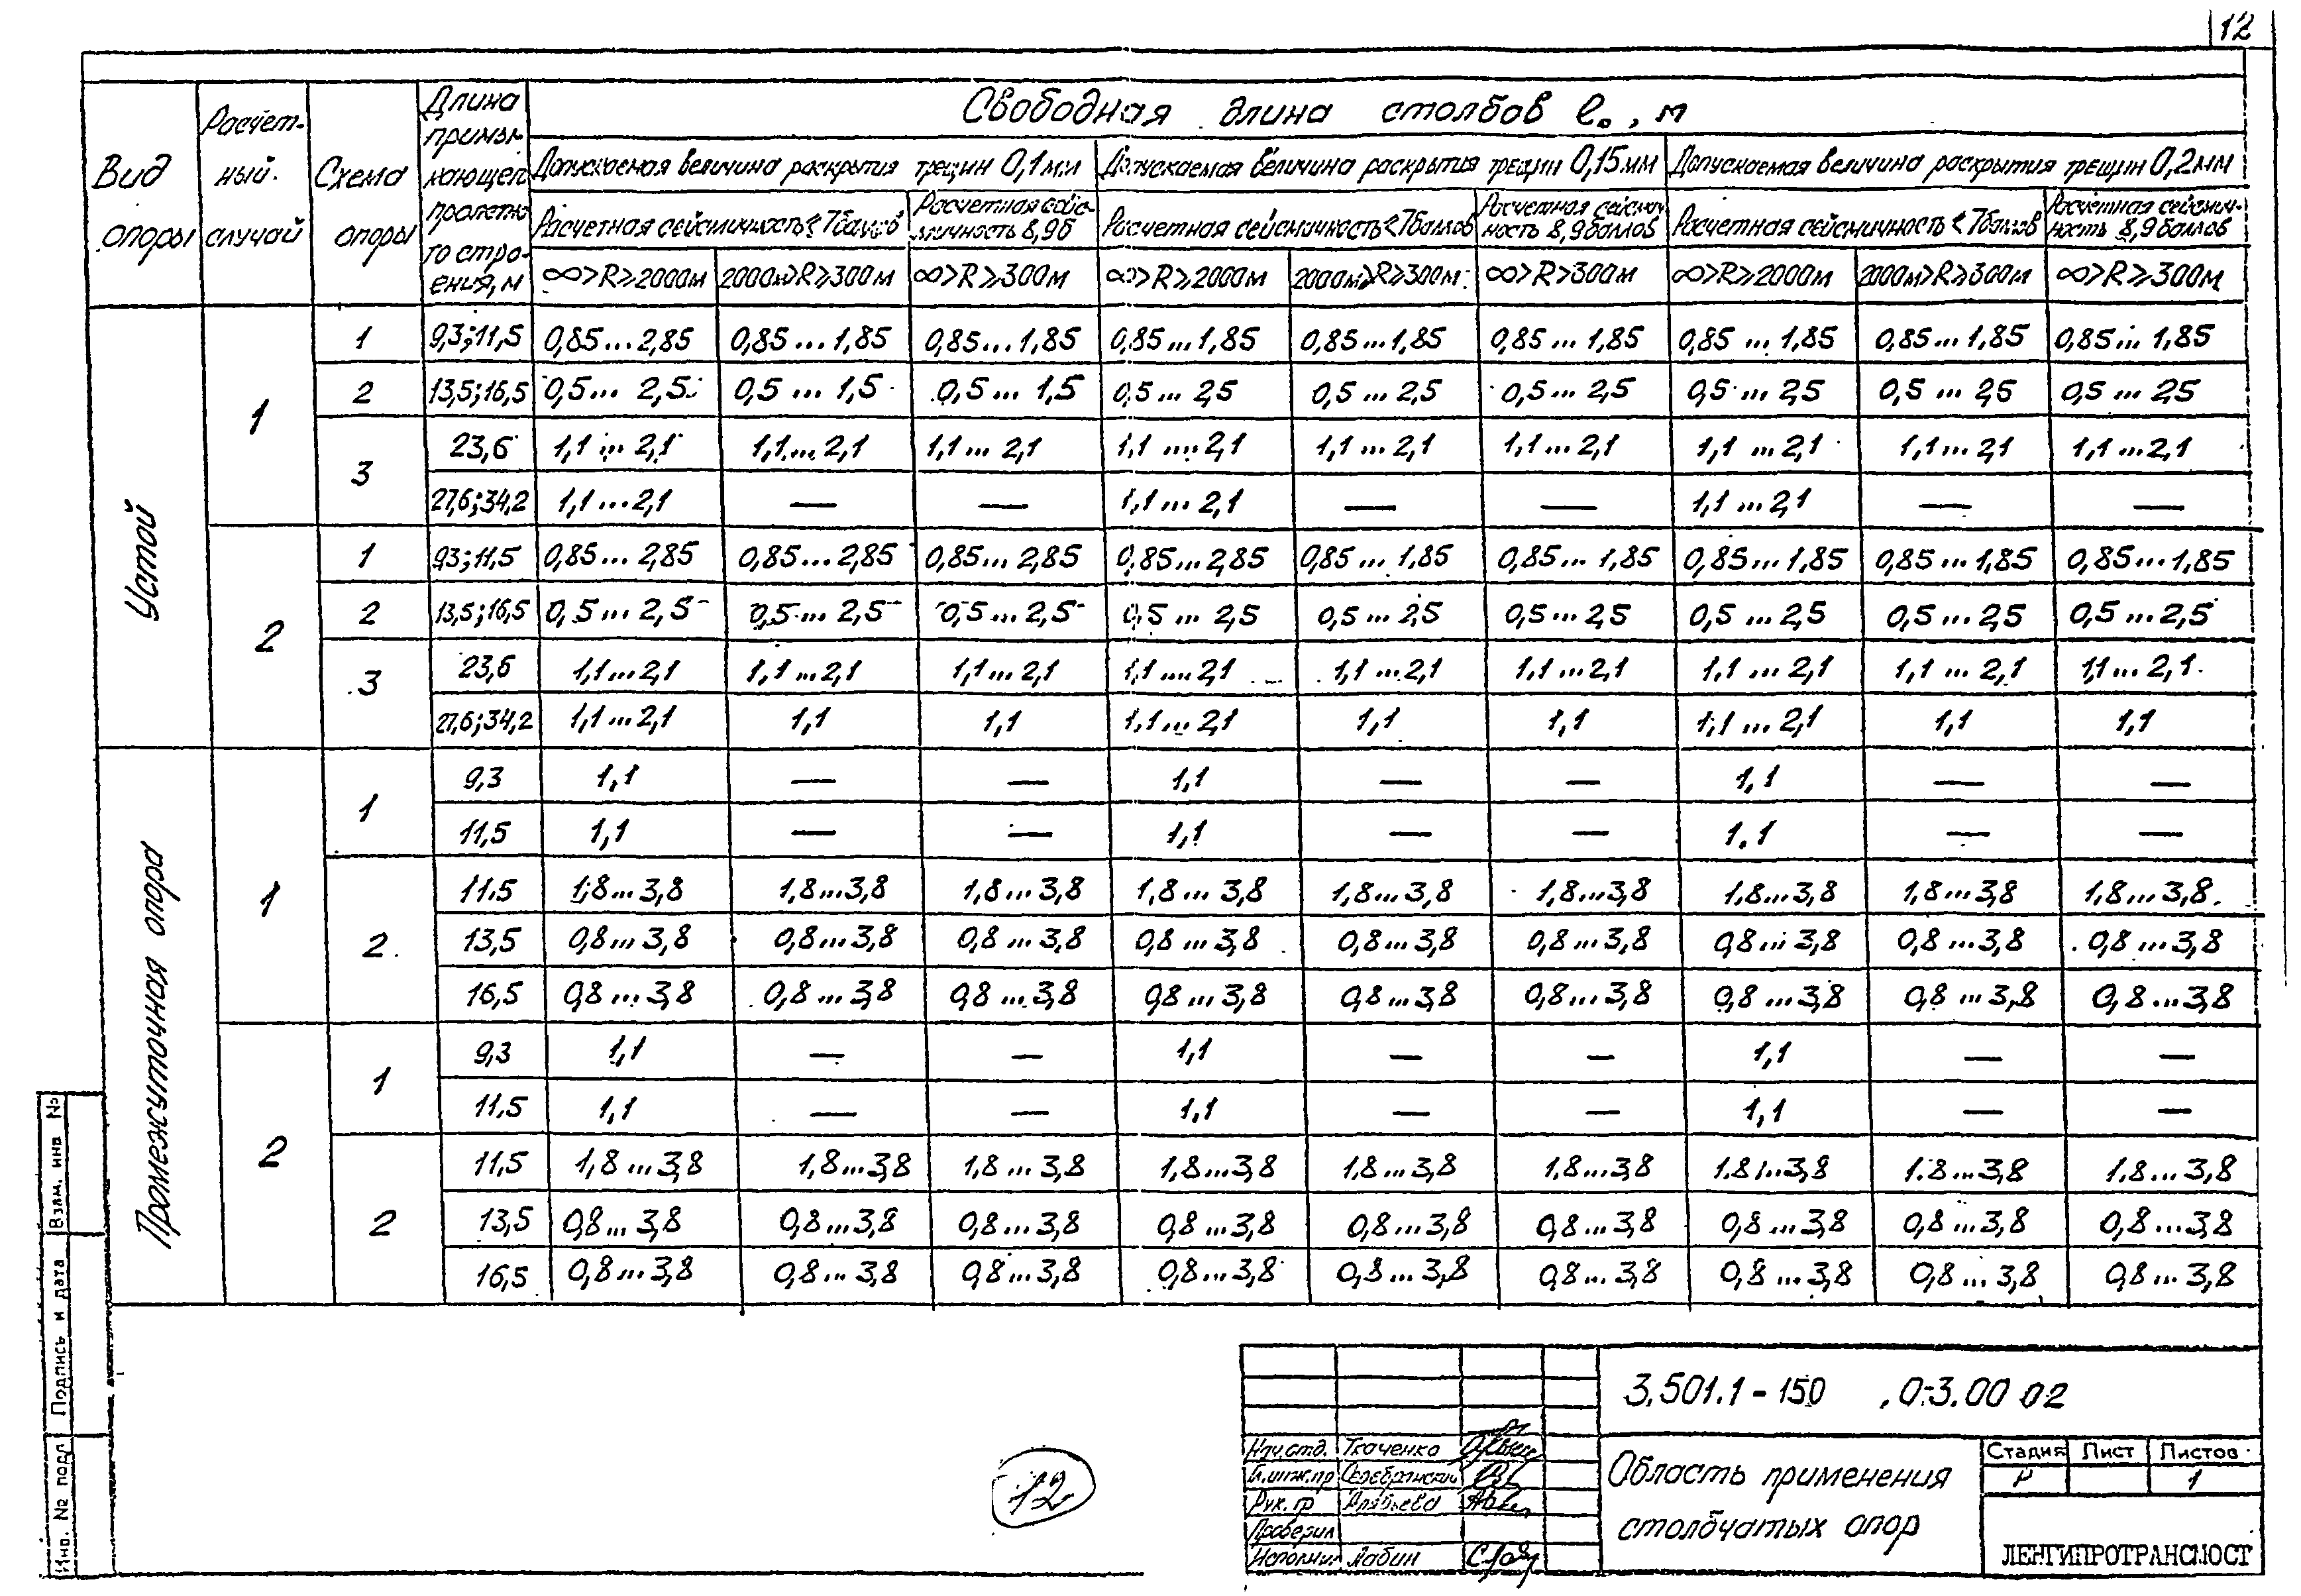 12
Вид опоры | Расчет-ный случай | Схема опоры | Длина примы-кающего пролетно-го стро-ения, м | Свободная длина столбов l₀, м
Допускаемая величина раскрытия трещин 0,1 мм | Допускаемая величина раскрытия трещин 0,15 мм | Допускаемая величина раскрытия трещин 0,2 мм
Расчетная сейсмичность ≤ 7 баллов | Расчетная сейс-мичность 8,9 б | Расчетная сейсмичность < 7 баллов | Расчетная сейсмич-ность 8,9 баллов | Расчетная сейсмичность < 7 баллов | Расчетная сейсмич-ность 8,9 баллов
∞>R≥2000м | 2000м>R≥300м | ∞>R≥300м | ∞>R≥2000м | 2000м>R≥300м | ∞>R>300м | ∞>R≥2000м | 2000м>R≥300м | ∞>R≥300м
Устой
1 | 1 | 9,3; 11,5 | 0,85...2,85 | 0,85...1,85 | 0,85...1,85 | 0,85...1,85 | 0,85...1,85 | 0,85...1,85 | 0,85...1,85 | 0,85...1,85 | 0,85...1,85
2 | 13,5; 16,5 | 0,5...2,5 | 0,5...1,5 | 0,5...1,5 | 0,5...2,5 | 0,5...2,5 | 0,5...2,5 | 0,5...2,5 | 0,5...2,5 | 0,5...2,5
3 | 23,6 | 1,1...2,1 | 1,1...2,1 | 1,1...2,1 | 1,1...2,1 | 1,1...2,1 | 1,1...2,1 | 1,1...2,1 | 1,1...2,1 | 1,1...2,1
27,6; 34,2 | 1,1...2,1 | — | — | 1,1...2,1 | — | — | 1,1...2,1 | — | —
2 | 1 | 9,3; 11,5 | 0,85...2,85 | 0,85...2,85 | 0,85...2,85 | 0,85...2,85 | 0,85...1,85 | 0,85...1,85 | 0,85...1,85 | 0,85...1,85 | 0,85...1,85
2 | 13,5; 16,5 | 0,5...2,5 | 0,5...2,5 | 0,5...2,5 | 0,5...2,5 | 0,5...2,5 | 0,5...2,5 | 0,5...2,5 | 0,5...2,5 | 0,5...2,5
3 | 23,6 | 1,1...2,1 | 1,1...2,1 | 1,1...2,1 | 1,1...2,1 | 1,1...2,1 | 1,1...2,1 | 1,1...2,1 | 1,1...2,1 | 1,1...2,1
27,6; 34,2 | 1,1...2,1 | 1,1 | 1,1 | 1,1...2,1 | 1,1 | 1,1 | 1,1...2,1 | 1,1 | 1,1
Промежуточная опора
1 | 1 | 9,3 | 1,1 | — | — | 1,1 | — | — | 1,1 | — | —
11,5 | 1,1 | — | — | 1,1 | — | — | 1,1 | — | —
2 | 11,5 | 1,8...3,8 | 1,8...3,8 | 1,8...3,8 | 1,8...3,8 | 1,8...3,8 | 1,8...3,8 | 1,8...3,8 | 1,8...3,8 | 1,8...3,8
13,5 | 0,8...3,8 | 0,8...3,8 | 0,8...3,8 | 0,8...3,8 | 0,8...3,8 | 0,8...3,8 | 0,8...3,8 | 0,8...3,8 | 0,8...3,8
16,5 | 0,8...3,8 | 0,8...3,8 | 0,8...3,8 | 0,8...3,8 | 0,8...3,8 | 0,8...3,8 | 0,8...3,8 | 0,8...3,8 | 0,8...3,8
2 | 1 | 9,3 | 1,1 | — | — | 1,1 | — | — | 1,1 | — | —
11,5 | 1,1 | — | — | 1,1 | — | — | 1,1 | — | —
2 | 11,5 | 1,8...3,8 | 1,8...3,8 | 1,8...3,8 | 1,8...3,8 | 1,8...3,8 | 1,8...3,8 | 1,8...3,8 | 1,8...3,8 | 1,8...3,8
13,5 | 0,8...3,8 | 0,8...3,8 | 0,8...3,8 | 0,8...3,8 | 0,8...3,8 | 0,8...3,8 | 0,8...3,8 | 0,8...3,8 | 0,8...3,8
16,5 | 0,8...3,8 | 0,8...3,8 | 0,8...3,8 | 0,8...3,8 | 0,8...3,8 | 0,8...3,8 | 0,8...3,8 | 0,8...3,8 | 0,8...3,8
Взам. инв №
Подпись и дата
Инв. № подл
12
3.501.1-150 .0-3.00 02
Нач.отд. Ткаченко
Гл.инж.пр Серебрянский
Рук. гр
Проверил
Исполнил Лабин
Область применения
столбчатых опор
Стадия | Лист | Листов
Р | | 1
ЛЕНГИПРОТРАНСМОСТ